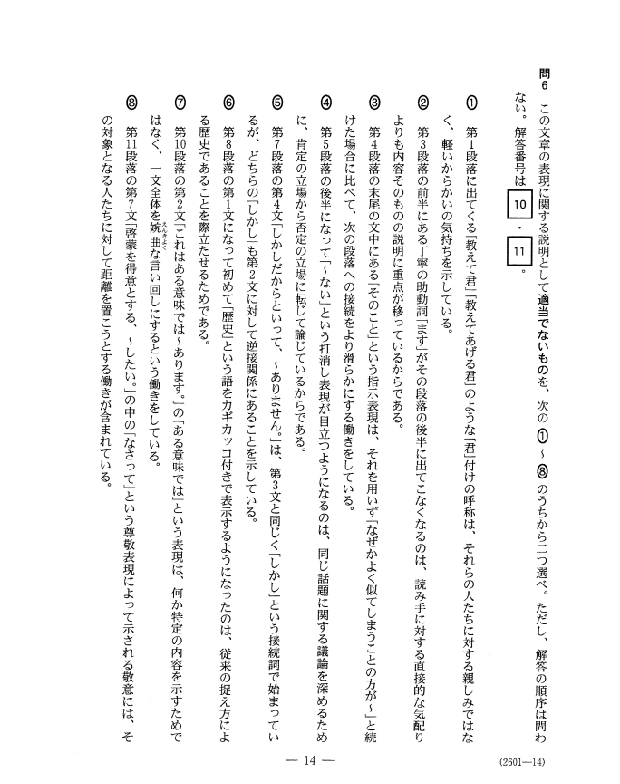 問6 この文章の表現に関する説明として適当でないものを、次の①～⑧のうちから二つ選べ。ただし、解答の順序は問わ
ない。解答番号は 10 ・ 11 。
① 第1段落に出てくる「教えて君」「教えてあげる君」のような「君」付けの呼称は、それらの人たちに対する親しみではな
く、軽いからかいの気持ちを示している。
② 第3段落の前半にある丁寧の助動詞「ます」がその段落の後半に出てこなくなるのは、読み手に対する直接的な気配り
よりも内容そのものの説明に重点が移っているからである。
③ 第4段落の末尾の文中にある「そのこと」という指示表現は、それを用いず「なぜかよく似てしまうことの方が～」と続
けた場合に比べて、次の段落への接続をより滑らかにする働きをしている。
④ 第5段落の後半になって「～ない」という打消し表現が目立つようになるのは、同じ話題に関する議論を深めるため
に、肯定の立場から否定の立場に転じて論じているからである。
⑤ 第7段落の第4文「しかしだからといって、～ありません。」は、第3文と同じく「しかし」という接続詞で始まってい
るが、どちらの「しかし」も第2文に対して逆接関係にあることを示している。
⑥ 第8段落の第1文になって初めて「歴史」という語をカギカッコ付きで表示するようになったのは、従来の捉え方によ
る歴史であることを際立たせるためである。
⑦ 第10段落の第2文「これはある意味では～あります。」の「ある意味では」という表現は、何か特定の内容を示すためで
はなく、一文全体を婉曲な言い回しにするという働きをしている。
えんきょく
⑧ 第11段落の第7文「啓蒙を得意とする、～したい。」の中の「なさって」という尊敬表現によって示される敬意には、そ
の対象となる人たちに対して距離を置こうとする働きが含まれている。
— 14 —
(2501—14)